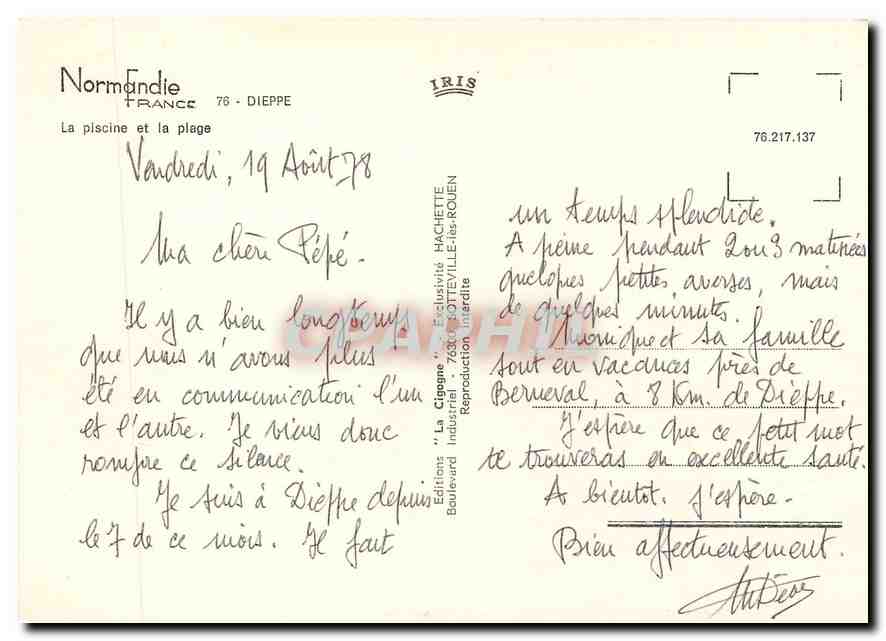 Normandie
FRANCE 76 - DIEPPE
La piscine et la plage
IRIS
76.217.137
Vendredi, 19 Août 78
Ma chère Pépé.
Il y a bien longtemps
que nous n'avons plus
été en communication l'un
et l'autre. Je viens donc
rompre ce silence.
Je suis à Dieppe depuis
le 7 de ce mois. Il fait
Editions "La Cigogne" - Exclusivité HACHETTE
Boulevard Industriel - 76300 SOTTEVILLE-lès-ROUEN
Reproduction interdite
CPARHII
un temps splendide.
A peine pendant 2 ou 3 matinées
quelques petites averses, mais
de quelques minutes.
Monique et sa famille
sont en vacances près de
Berneval, à 8 Km. de Dieppe.
J'espère que ce petit mot
te trouveras en excellente santé.
A bientot. j'espère -
Bien affectueusement.